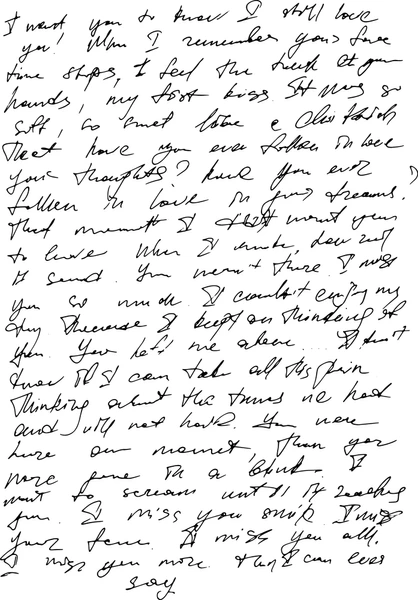 I want you to know I still love
you! When I remember your face
time stops, I feel the touch of your
hands, my first kiss. It was so
soft, so sweet like a
That have you ever fallen in love
your thoughts? have you ever
fallen in love in your dreams?
That moment I want you
to leave When I
it sound. You weren't there I miss
you so much. I couldn't enjoy my
day because I kept on thinking of
you. You left me alone... I don't
know if I can take all this pain
Thinking about the times we had
and will not have. You were
here one moment, than you
were gone in a blink. I
want to scream until it reaches
you. I miss you smile I miss
your face. I miss you all.
I miss you more than I can ever
say